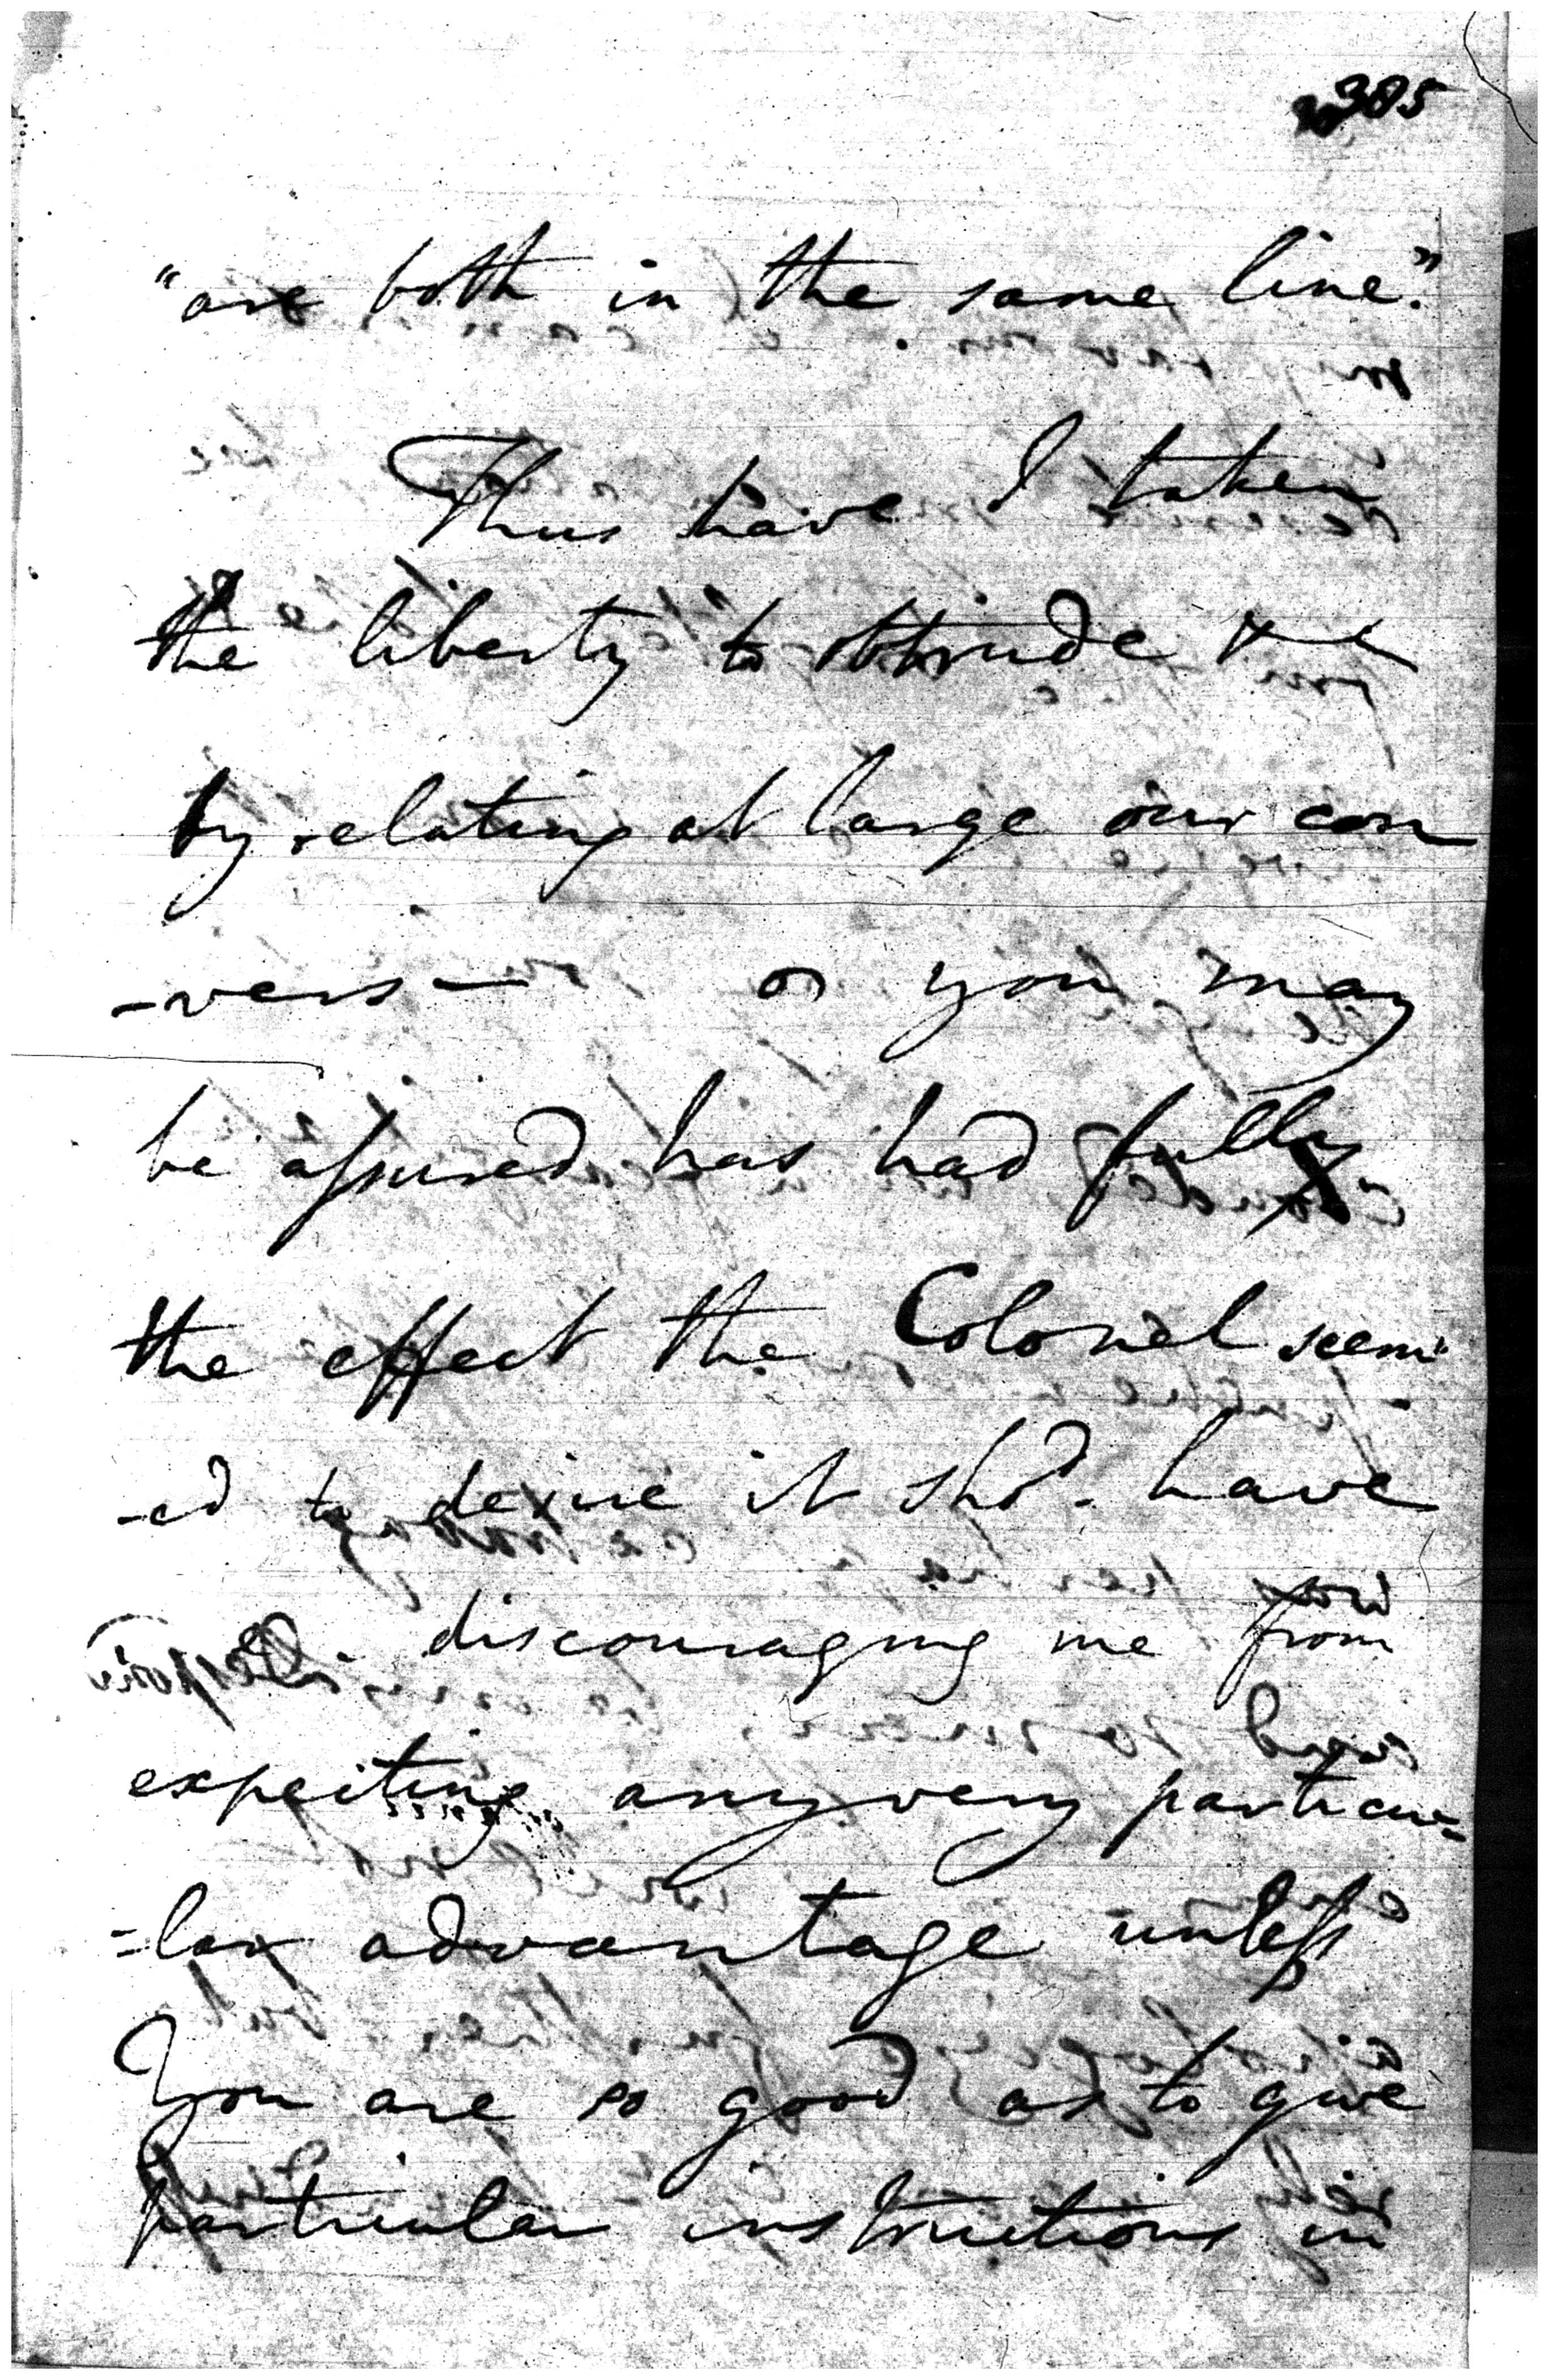 305
"are both in the same line."
Thus have I taken
the liberty to obtrude
by relating at large our con
-vers- or you may
be assured has had fully
the effect the Colonel seem-
-ed to desire it shd. have
discouraging me from
expecting any very particu=
=lar advantage unless
You are so good as to give
particular instructions in